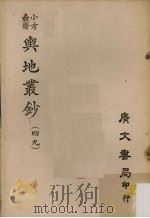 小方壺齋
輿地叢鈔
(四九)
廣文書局印行